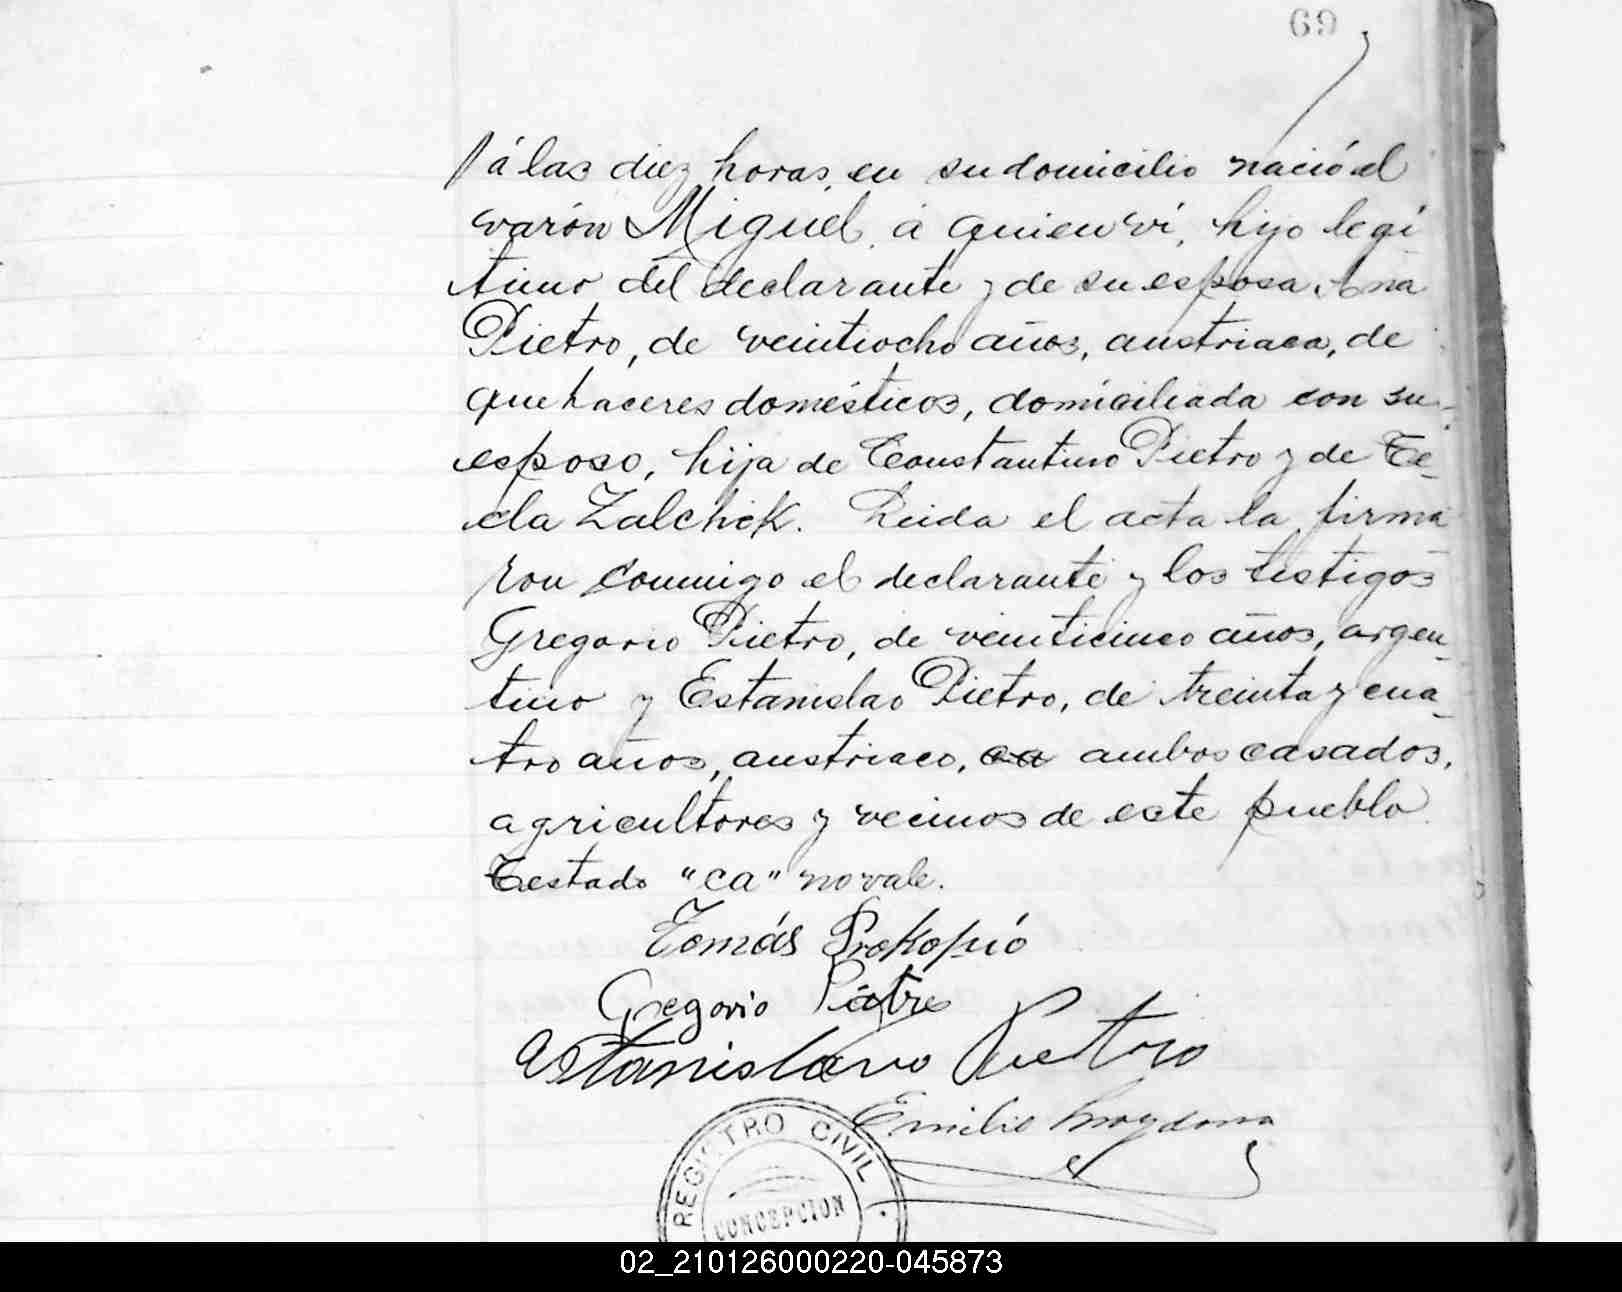 69
á las diez horas, en su domicilio nació el
varón Miguel, á quien vi, hijo legí
timo del declarante y de su esposa Ana
Pietro, de veintiocho años, austriaca, de
quehaceres domésticos, domiciliada con su
esposo, hija de Constantino Pietro y de Te-
cla Zalchek. Leida el acta la firma
ron conmigo el declarante y los testigos
Gregorio Pietro, de veinticinco años, argen-
tino y Estanislao Pietro, de treinta y cua-
tro años, austriaco, ca ambos casados,
agricultores y vecinos de este pueblo.
Testado "ca" no vale.
Tomás Prokopió
Gregorio Pietro
Estanislavo Pietro
Emilio
REGISTRO CIVIL
CONCEPCION
02_210126000220-045873